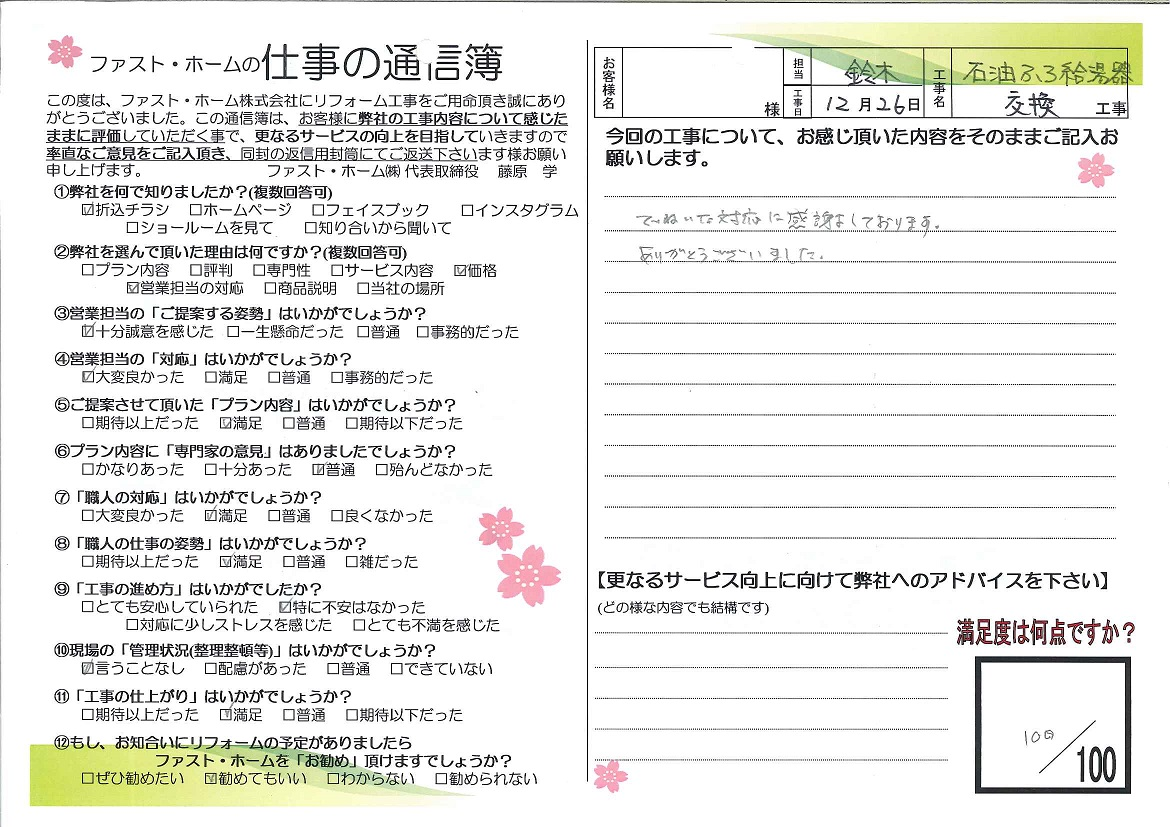 ファスト・ホームの仕事の通信簿
この度は、ファスト・ホーム株式会社にリフォーム工事をご用命頂き誠にあり
がとうございました。この通信簿は、お客様に弊社の工事内容について感じた
ままに評価していただく事で、更なるサービスの向上を目指していきますので
率直なご意見をご記入頂き、同封の返信用封筒にてご返送下さいます様お願い
申し上げます。 ファスト・ホーム㈱ 代表取締役 藤原 学
①弊社を何で知りましたか？(複数回答可)
☑折込チラシ □ホームページ □フェイスブック □インスタグラム
□ショールームを見て □知り合いから聞いて
②弊社を選んで頂いた理由は何ですか？(複数回答可)
□プラン内容 □評判 □専門性 □サービス内容 ☑価格
☑営業担当の対応 □商品説明 □当社の場所
③営業担当の「ご提案する姿勢」はいかがでしょうか？
☑十分誠意を感じた □一生懸命だった □普通 □事務的だった
④営業担当の「対応」はいかがでしょうか？
☑大変良かった □満足 □普通 □事務的だった
⑤ご提案させて頂いた「プラン内容」はいかがでしょうか？
□期待以上だった ☑満足 □普通 □期待以下だった
⑥プラン内容に「専門家の意見」はありましたでしょうか？
□かなりあった □十分あった ☑普通 □殆んどなかった
⑦「職人の対応」はいかがでしょうか？
□大変良かった ☑満足 □普通 □良くなかった
⑧「職人の仕事の姿勢」はいかがでしょうか？
□期待以上だった ☑満足 □普通 □雑だった
⑨「工事の進め方」はいかがでしたか？
□とても安心していられた ☑特に不安はなかった
□対応に少しストレスを感じた □とても不満を感じた
⑩現場の「管理状況(整理整頓等)」はいかがでしょうか？
☑言うことなし □配慮があった □普通 □できていない
⑪「工事の仕上がり」はいかがでしょうか？
□期待以上だった ☑満足 □普通 □期待以下だった
⑫もし、お知合いにリフォームの予定がありましたら
ファスト・ホームを「お勧め」頂けますでしょうか？
□ぜひ勧めたい ☑勧めてもいい □わからない □勧められない
お客様名 様 担当 鈴木 工事名 石油ふろ給湯器
工事日 12月26日 交換 工事
今回の工事について、お感じ頂いた内容をそのままご記入お
願いします。
ていねいな対応に感謝しております。
ありがとうございました。
【更なるサービス向上に向けて弊社へのアドバイスを下さい】
(どの様な内容でも結構です)
満足度は何点ですか？
100／100